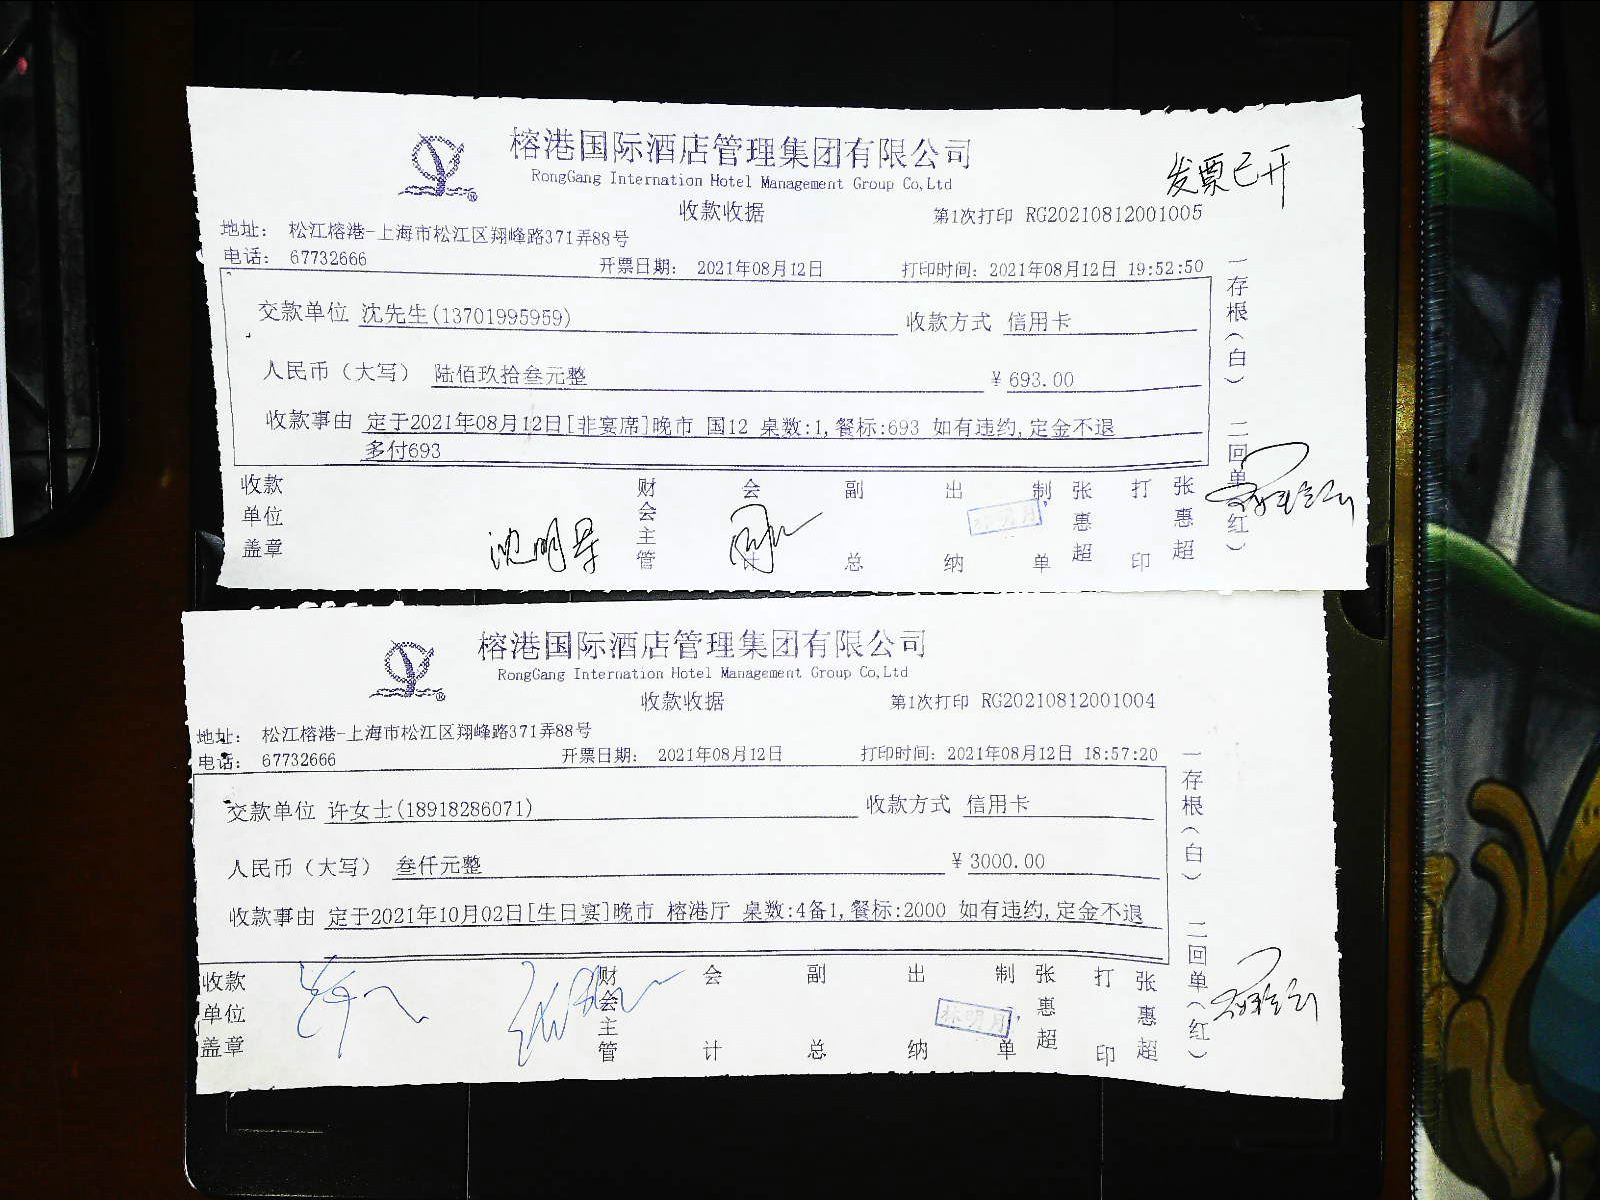 榕港国际酒店管理集团有限公司
RongGang Internation Hotel Management Group Co,Ltd
发票已开
收款收据
第1次打印 RG20210812001005
地址： 松江榕港-上海市松江区翔峰路371弄88号
电话： 67732666 开票日期： 2021年08月12日 打印时间：2021年08月12日 19:52:50
交款单位 沈先生(13701995959) 收款方式 信用卡
人民币（大写） 陆佰玖拾叁元整 ¥ 693.00
收款事由 定于2021年08月12日[非宴席]晚市 国12 桌数:1,餐标:693 如有违约,定金不退
多付693
一存根（白） 二回单（红）
收款单位盖章 财会主管 会计 副总 出纳 林明月 制单 张惠超 打印 张惠超
榕港国际酒店管理集团有限公司
RongGang Internation Hotel Management Group Co,Ltd
收款收据
第1次打印 RG20210812001004
地址： 松江榕港-上海市松江区翔峰路371弄88号
电话： 67732666 开票日期： 2021年08月12日 打印时间：2021年08月12日 18:57:20
交款单位 许女士(18918286071) 收款方式 信用卡
人民币（大写） 叁仟元整 ¥ 3000.00
收款事由 定于2021年10月02日[生日宴]晚市 榕港厅 桌数:4备1,餐标:2000 如有违约,定金不退
一存根（白） 二回单（红）
收款单位盖章 财会主管 会计 副总 出纳 林明月 制单 张惠超 打印 张惠超